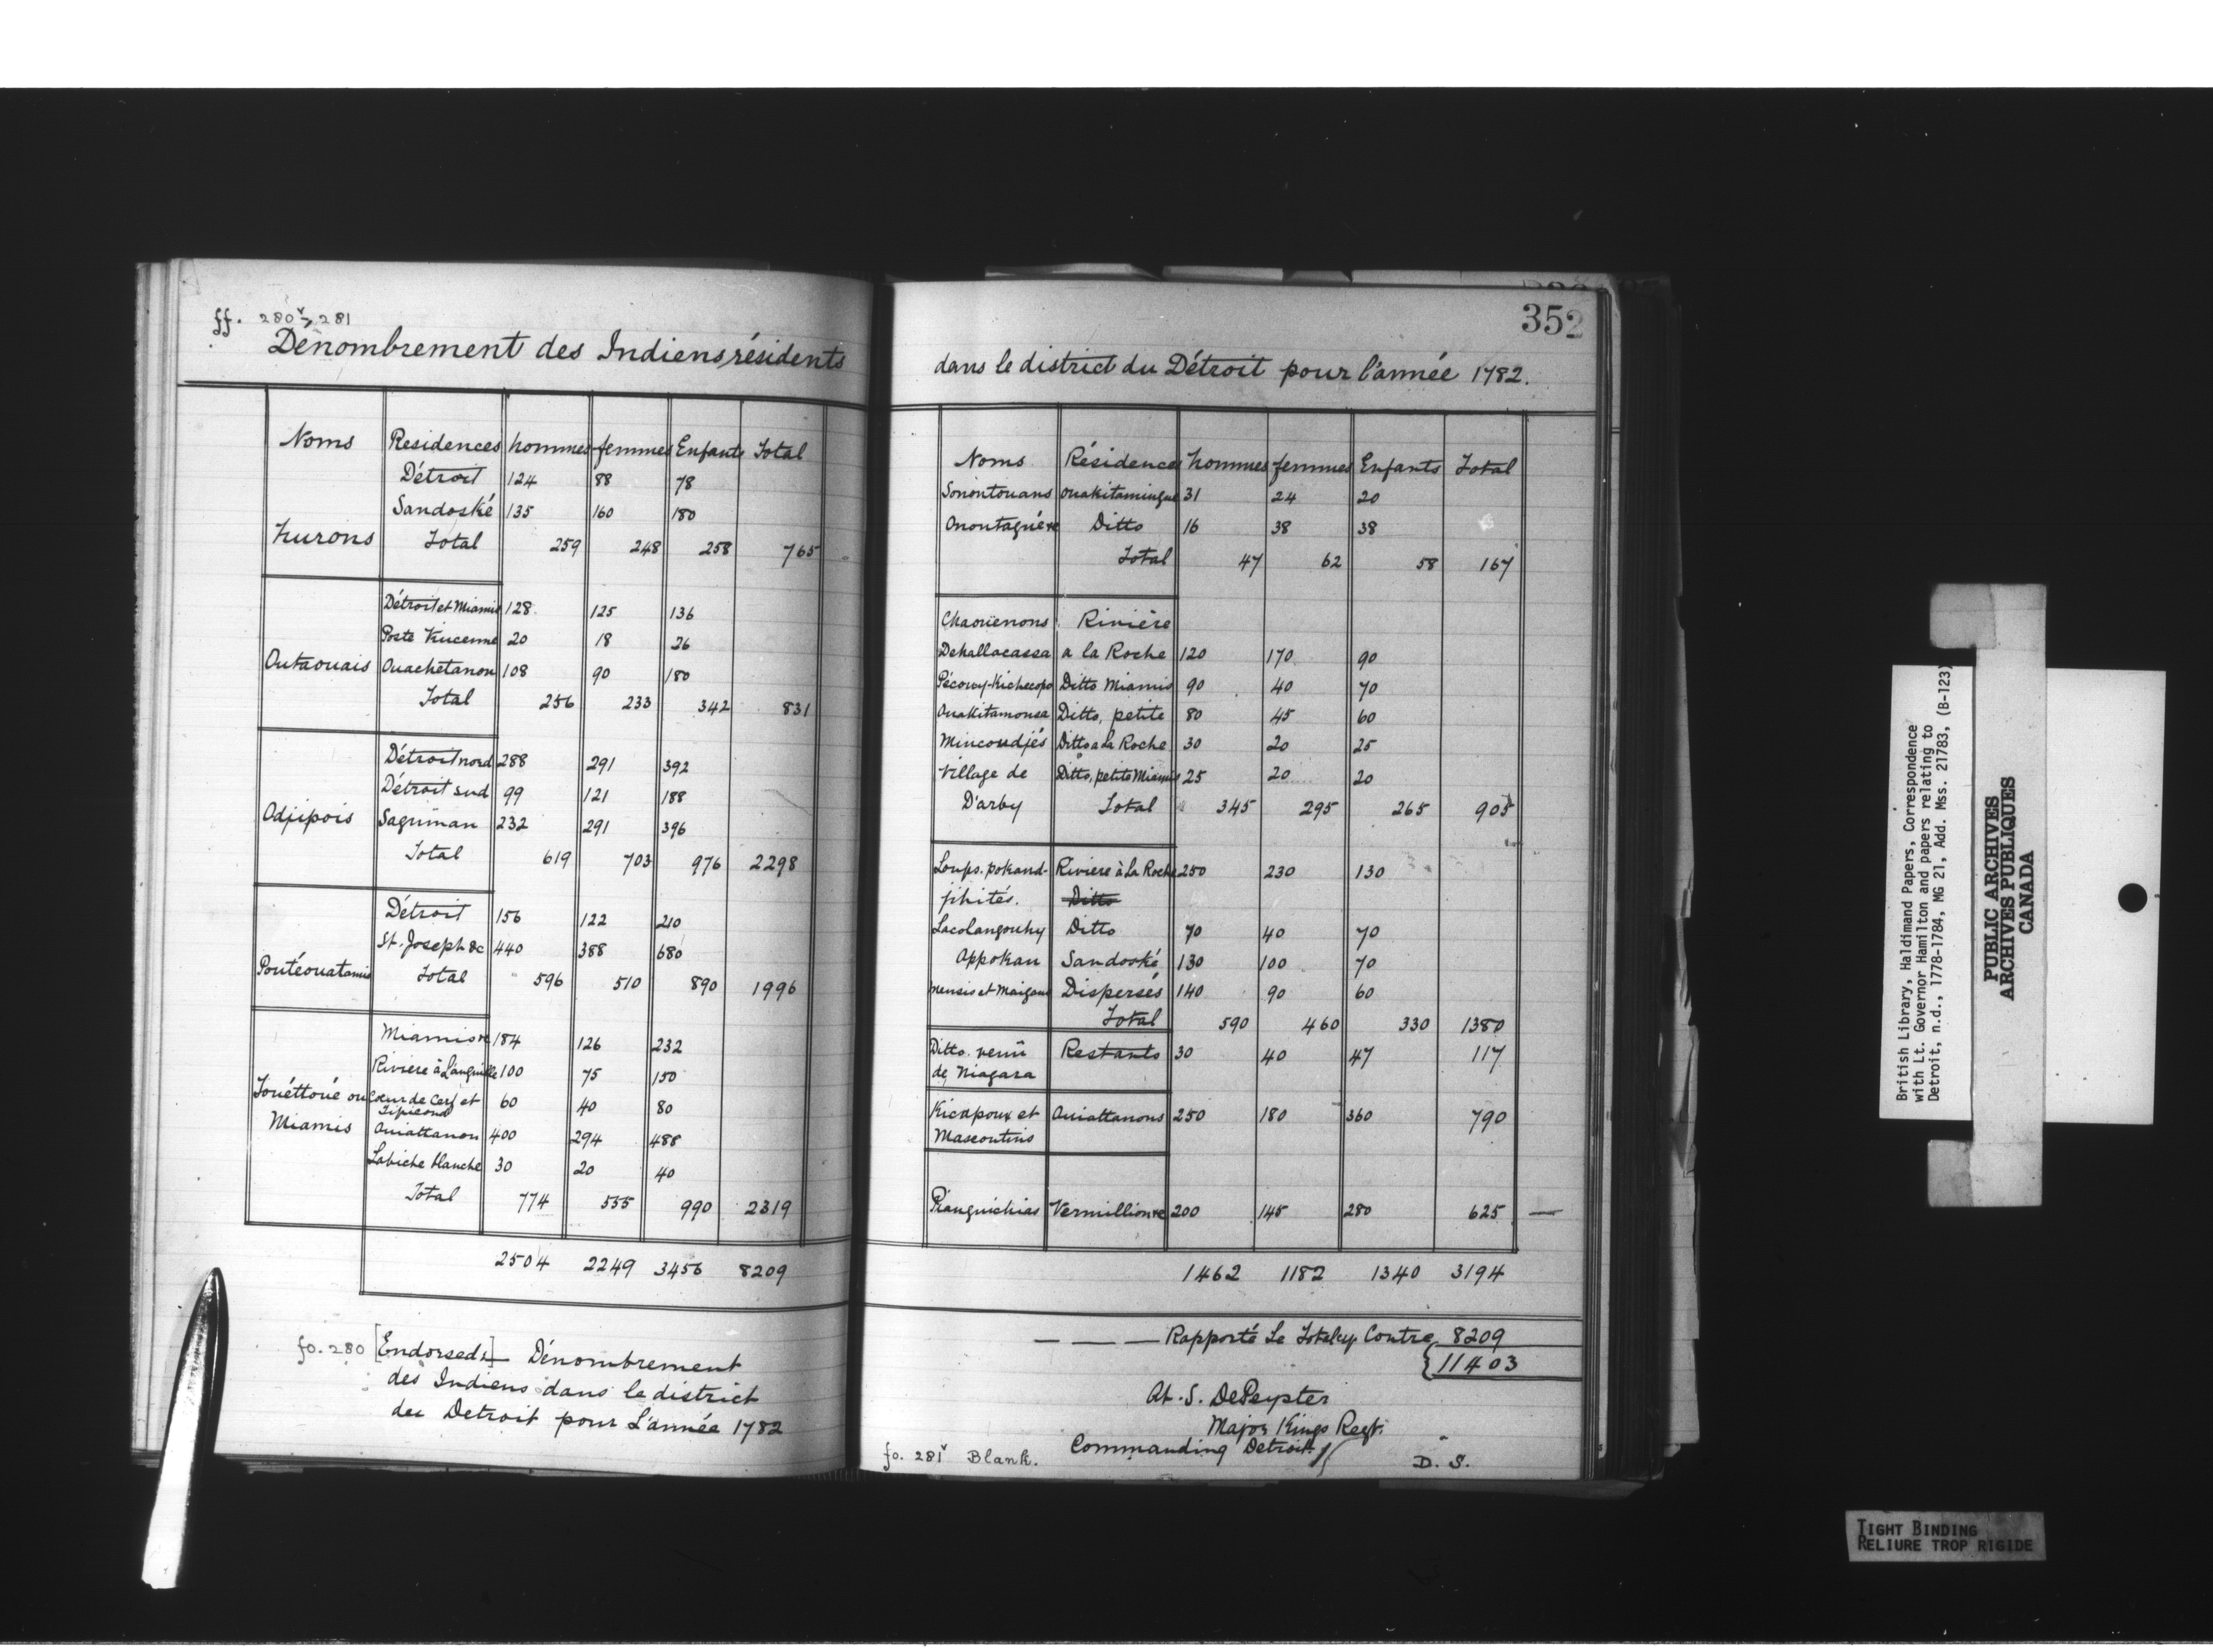 ff. 280v, 281
Dénombrement des Indiens résidents
Noms Residences hommes femmes Enfants Total
Détroit 124 88 78
Sandoské 135 160 180
Hurons Total 259 248 258 765
Détroit et Miamis 128 125 136
Poste Vincenne 20 18 26
Outaouais Ouachetanon 108 90 180
Total 256 233 342 831
Détroit nord 288 291 392
Détroit sud 99 121 188
Odjipois Saguinan 232 291 396
Total 619 703 976 2298
Détroit 156 122 210
St. Joseph &c 440 388 680
Poutéouatamis Total 596 510 890 1996
Miamis re 184 126 232
Riviere à L'anguille 100 75 150
Touéttoué ou Coeur de Cerf et 60 40 80
Tipicano
Miamis Ouiattanon 400 294 488
Labiche blanche 30 20 40
Total 774 555 990 2319
2504 2249 3456 8209
fo. 280 [Endorsed:] Dénombrement
des Indiens dans le district
du Detroit pour L'année 1782
352
dans le district du Détroit pour l'année 1782.
Noms Résidences hommes femmes Enfants Total
Sonontouans Ouakitamingue 31 24 20
Onontaguée re Ditto 16 38 38
Total 47 62 58 167
Chaouenons Rivière
Dekallacassa a la Roche 120 170 90
Pécowy-Kichecopo Ditto Miamis 90 40 70
Ouakitamonsa Ditto, petite 80 45 60
Mincoudjés Ditto a la Roche 30 20 25
Village de Ditto, petite Miamis 25 20 20
D'arby Total 345 295 265 905
Loups. pokand- Riviere à La Roche 250 230 130
jihités. Ditto
Lacolangouhy Ditto 70 40 70
Appokan Sandoské 130 100 70
nensis et Maigans Dispersés 140 90 60
Total 590 460 330 1380
Ditto. venû Restants 30 40 47 117
de Niagara
Kicapoux et Ouiattanons 250 180 360 790
Mascoutins
Pianguichias Vermillion re 200 145 280 625 —
1462 1182 1340 3194
— — — Rapporté Le Total cy Contre 8209
11403
At. S. DePeyster
Major Kings Regt.
Commanding Detroit
fo. 281v Blank.
D. S.
British Library, Haldimand Papers, Correspondence
with Lt. Governor Hamilton and papers relating to
Detroit, n.d., 1778-1784, MG 21, Add. Mss. 21783, (B-123)
PUBLIC ARCHIVES
ARCHIVES PUBLIQUES
CANADA
TIGHT BINDING
RELIURE TROP RIGIDE